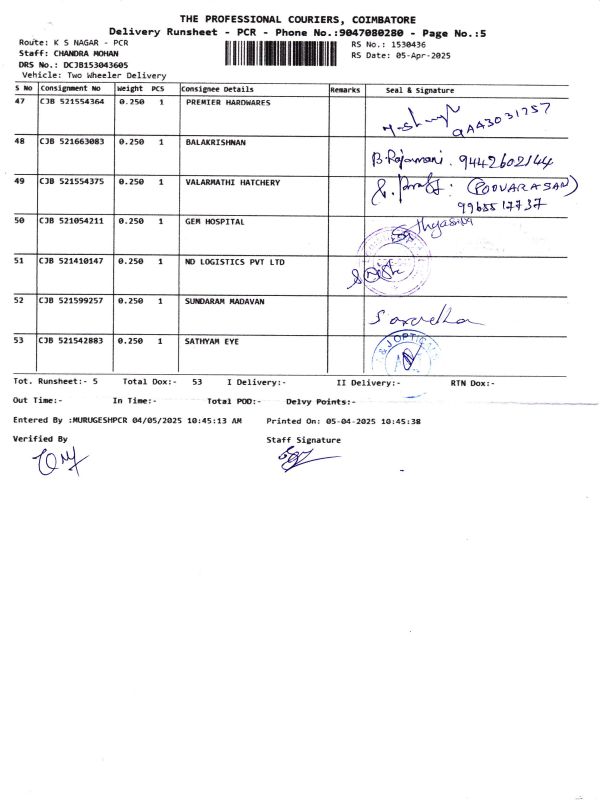 THE PROFESSIONAL COURIERS, COIMBATORE
Delivery Runsheet - PCR - Phone No.:9047080280 - Page No.:5
Route: K S NAGAR - PCR RS No.: 1530436
Staff: CHANDRA MOHAN RS Date: 05-Apr-2025
DRS No.: DCJB153043605
Vehicle: Two Wheeler Delivery
S No Consignment No Weight PCS Consignee Details Remarks Seal & Signature
47 CJB 521554364 0.250 1 PREMIER HARDWARES
48 CJB 521663083 0.250 1 BALAKRISHNAN B. Rajamani . 9442602144
49 CJB 521554375 0.250 1 VALARMATHI HATCHERY (POOVARASAN)
9965517737
50 CJB 521054211 0.250 1 GEM HOSPITAL
51 CJB 521410147 0.250 1 ND LOGISTICS PVT LTD
52 CJB 521599257 0.250 1 SUNDARAM MADAVAN
53 CJB 521542883 0.250 1 SATHYAM EYE
Tot. Runsheet:- 5 Total Dox:- 53 I Delivery:- II Delivery:- RTN Dox:-
Out Time:- In Time:- Total POD:- Delvy Points:-
Entered By :MURUGESHPCR 04/05/2025 10:45:13 AM Printed On: 05-04-2025 10:45:38
Verified By Staff Signature